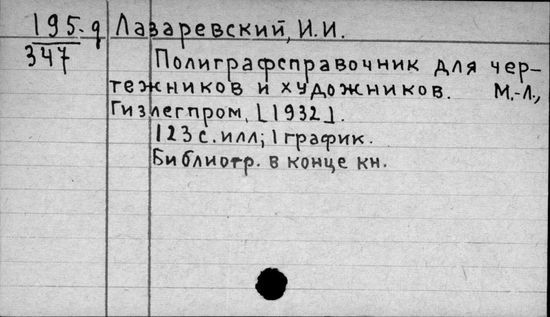 195-д Лазаревский, И.И.
347
Полиграфсправочник для чер-
тежников и художников. М.-Л.,
Гизлегпром, [1932].
123 с. илл; 1 график.
Библиогр. в конце кн.